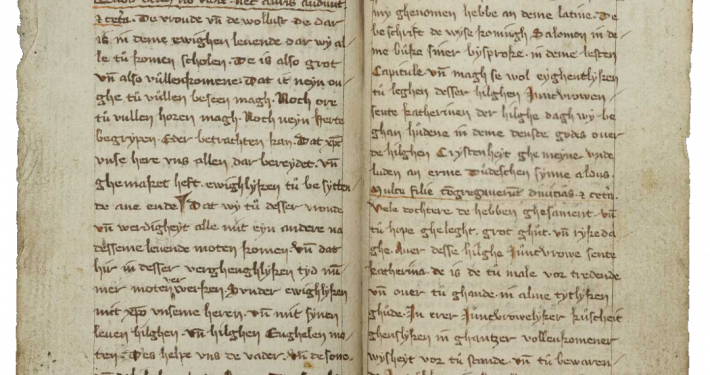 & cetera. De vroude vn̄ de wollust de dar
is in deme ewighen leuende dar wy al
le tů komen scholen. De is also grot
vn̄ also vůllenkomene. Dat it neyn ou
ghe tů vůllen beseen magh. Noch ore
tů vullen horen magh. Noch neyn herte
begrypen. Eder betrachten kan. Dat xp̄c
vnse here vns allen dar bereydet. vn̄
ghemaket heft. ewighlyken tů be sytten
de ane ende. Dat wy tů desser vroude
vn̄ werdigheyt alle mit eyn andere na
desseme leuende moten komen. Vn̄ dat
hir in desser verghenghlyken tyd nům
mer moten verwerken. Sunder ewighlyken
mit xp̄o vnseme heren. vn̄ mit synen
leuen hilghen. vn̄ hilghen Enghelen mo
ten. Des helpe vns de vader. Vn̄ de sone.
my ghenomen hebbe an deme latine. De
beschrift de wyse konnigh Salomon in de
me bůke siner bysproke. in deme lesten
Capitule vn̄ magh se wol eyghentlyken
tů leghen desser hilghen Juncvrowen
sente katherinen der hilghe dagh wy be
ghan hůdene in deme denste godes ouer
de hilghen Crystenheyt ghe meyne. vnde
luden an erme Dudeschen synne aldus.
Multe filie congregauerunt diuicias. & cetera.
Vele dochtere de hebben ghesament. vn̄
tů hope gheleght. grot ghůt. vn̄ rykeda
ghe. Auer desse hilghe Jůncvrowe sente
katherina. de is de tů male vor tredende
vn̄ ouer tů ghande. in alme tytlyken
ghůde. In erer Jůncvrowelyker kůscheit
ghenslyken in ghantzer vollenkomener
wysheyt vor tů stande vn̄ tů bewaren